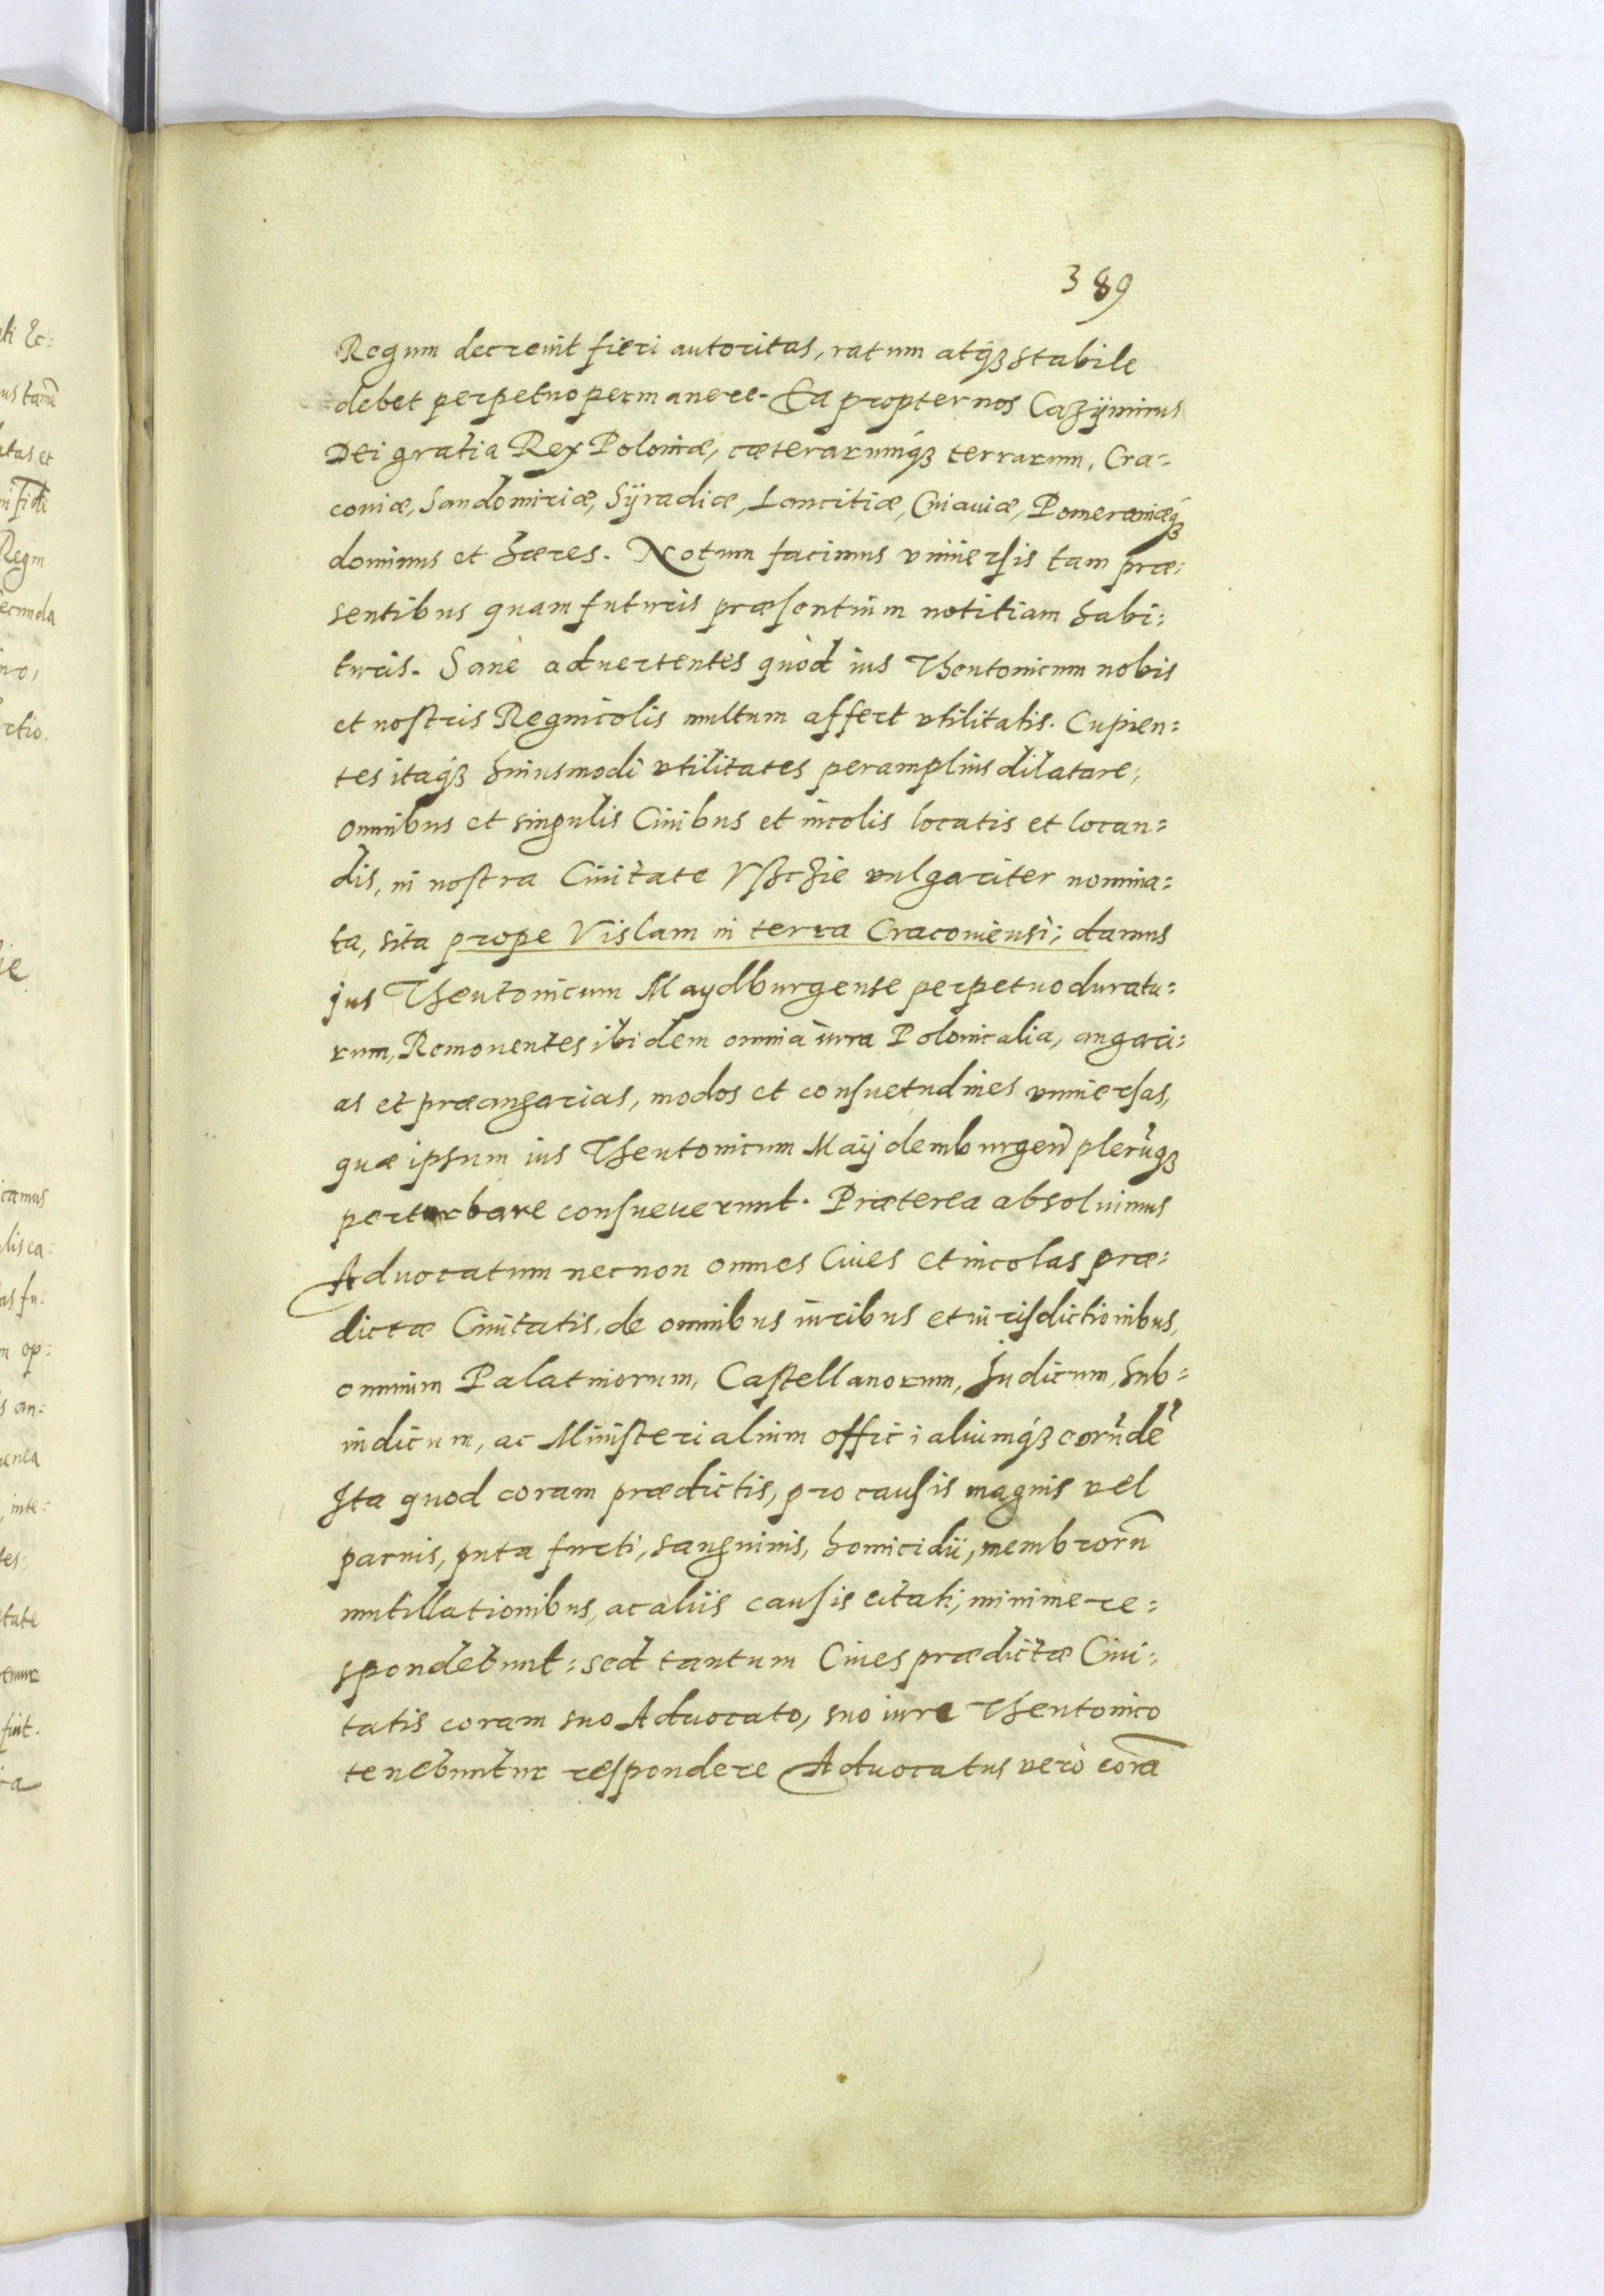 389
Regum decreuit fieri autoritas, ratum atq́ꝫ stabile
debet perpetuo permanere. Ea propter nos Cazÿmirus
Dei gratia Rex Poloniæ, cæterarumq́ꝫ terrarum, Cra=
couiæ, Sandomiriæ, Sÿradiæ, Lanciciæ, Cuiauiæ, Pomeraniæq́ꝫ
dominus et hæres. Notum facimus vniuersis tam præ:
sentibus quam futuris præsentium notitiam habi:
turis. Sanè aduertentes quòd ius Theutonicum nobis
et nostris Regnicolis multum affert vtilitatis. Cupien=
tes itaq́ꝫ huiusmodi vtilitates peramplius dilatare,
omnibus et singulis Ciuibus et incolis locatis et locan=
dis, in nostra Ciuitate Vszczie vulgariter nomina=
ta, sita prope Vislam in terra Cracouiensi; damus
jus Theutonicum Maydburgense perpetuo duratu=
rum, Remouentes ibidem omnia iura Polonicalia, angari:
as et præangarias, modos et consuetudines vniuersas,
quæ ipsum ius Theutonicum Maÿdemburgen̄ plerūqꝫ
perturbare consueuerunt. Præterea absoluimus
Aduocatum necnon omnes Ciues et incolas præ:
dictæ Ciuitatis, de omnibus iuribus et iurisdictionibus,
omnium Palatinorum, Castellanorum, Judicum, Sub=
iudicum, ac Ministerialium officialiumq́ꝫ eorūdē
Ita quod coram prædictis, pro causis magnis vel
paruis, puta furti, sanguinis, homicidii, membrorū
mutillationibus, ac aliis causis citati, minime re=
spondebunt: sed tantum Ciues prædictæ Ciui:
tatis coram suo Aduocato, suo iure Theutonico
tenebuntur respondere Aduocatus verò corā